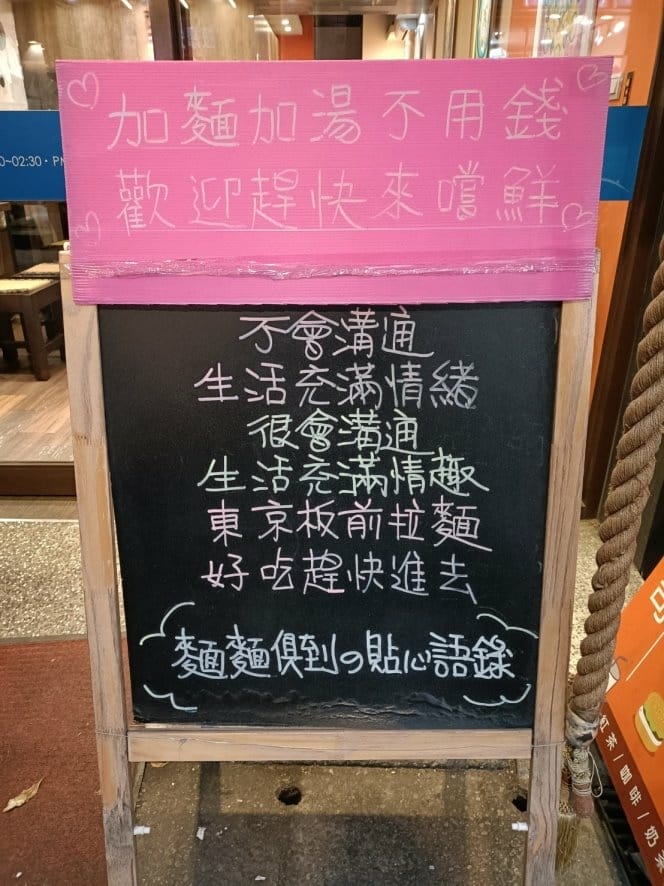 加麵加湯不用錢
歡迎趕快來嚐鮮
不會溝通
生活充滿情緒
很會溝通
生活充滿情趣
東京板前拉麵
好吃趕快進去
麵麵俱到の貼心語錄
0~02:30・PM
紅茶/咖啡/奶茶